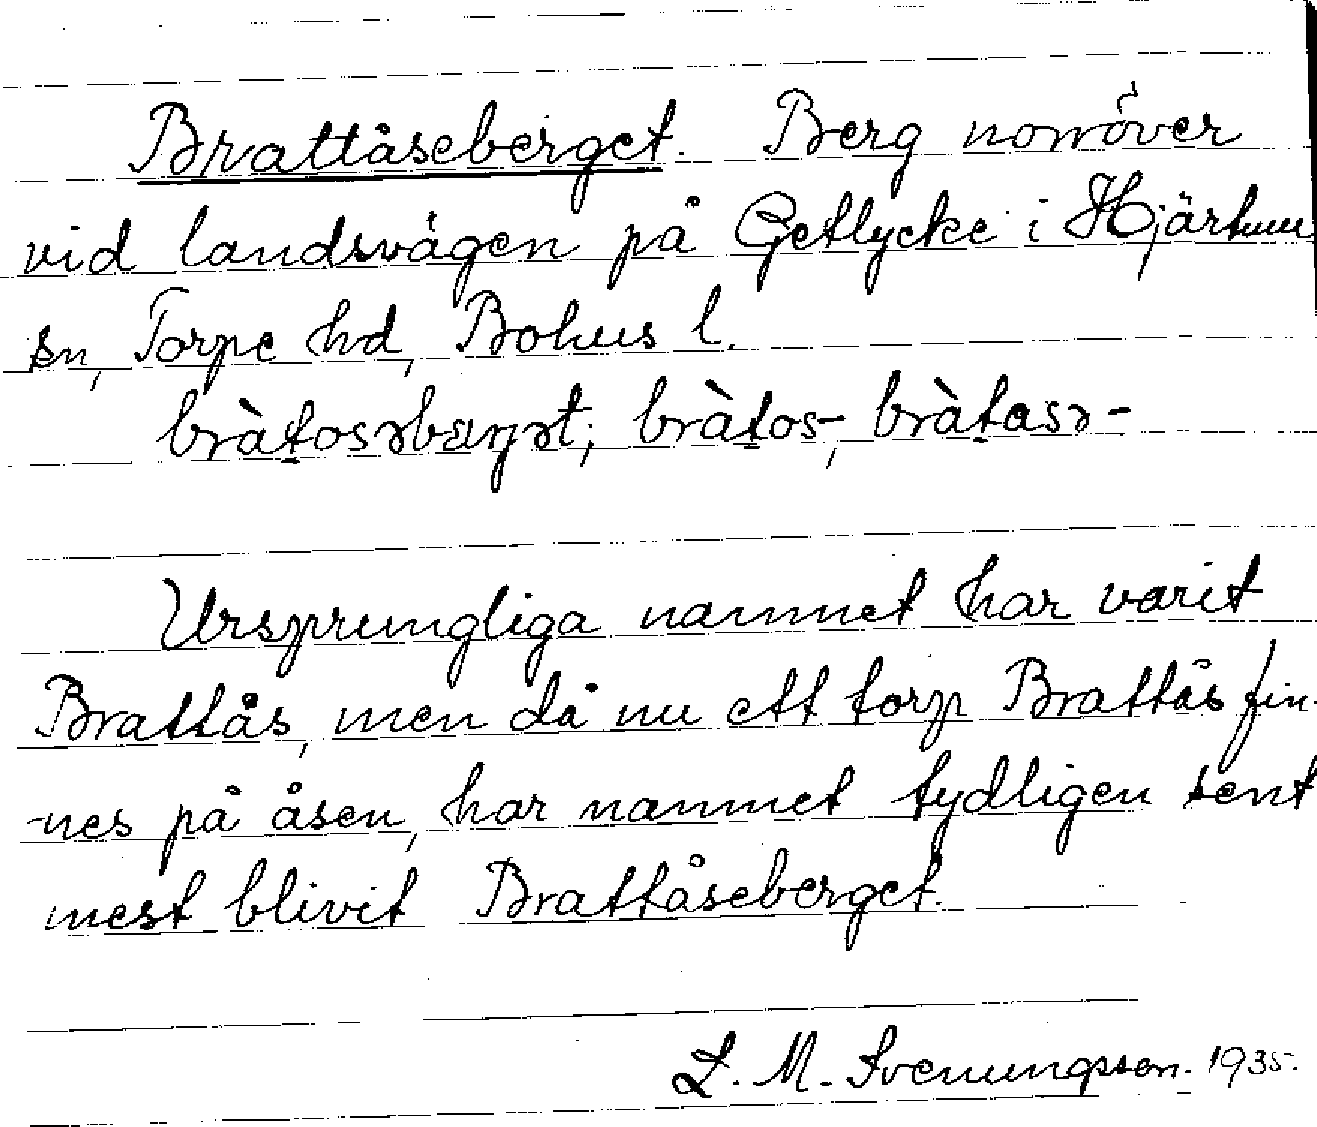 Brattåseberget. Berg norröver
vid landsvägen på Getlycke i Hjärtum
sn, Torpe hd, Bohus l.
bràtosəbærjət; bràtos-, bràtasə-
Ursprungliga namnet har varit
Brattås, men då nu ett torp Brattås fin-
nes på åsen, har namnet tydligen sent
mest blivit Brattåseberget.
L. M. Svenungsson. 1935.